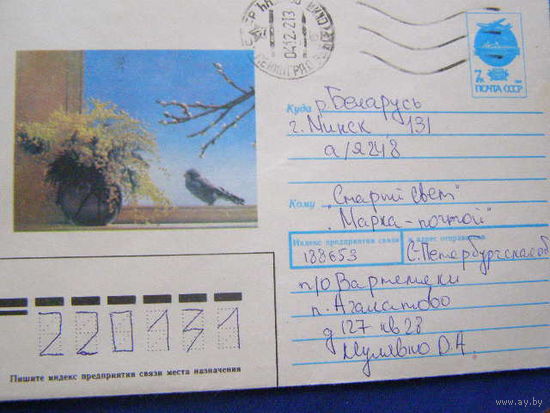 04.12.21 13
ЛЕНИНГРАД
7к
ПОЧТА СССР
Куда р. Беларусь
г. Минск, 131
а/я 218
Кому „Старый свет"
„Марка-почтой"
Индекс предприятия связи и адрес отправителя
188653 С.Петербургская обл
п/о Вартемяки
п. Агалатово
д 127 кв 28
220131
Пишите индекс предприятия связи места назначения
www.ay.by